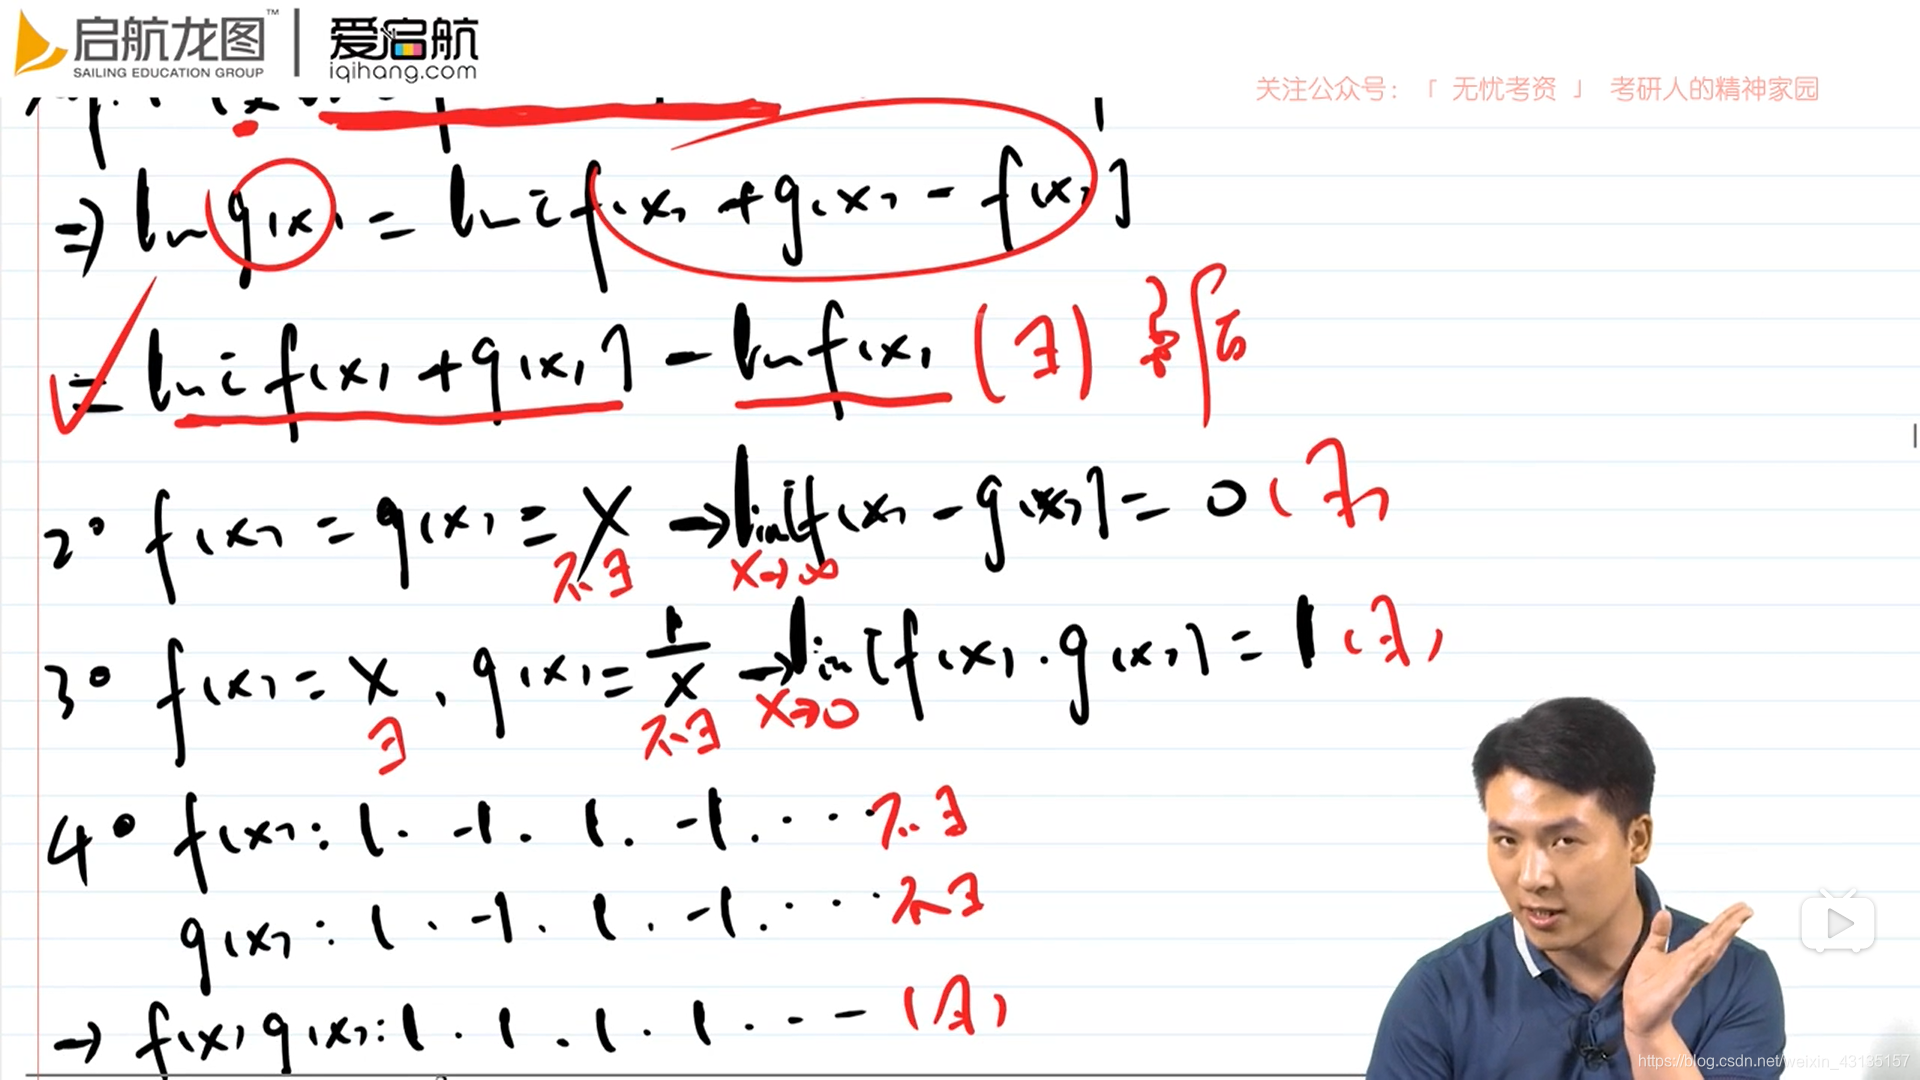 启航龙图™ | 爱启航
SAILING EDUCATION GROUP iqihang.com
关注公众号：「 无忧考资 」 考研人的精神家园
⇒ ln g(x) = ln[f(x) + g(x) - f(x)]
= ln[f(x) + g(x)] - ln f(x) (∃)
2° f(x) = g(x) = x → lim[f(x) - g(x)] = 0 (∃)
不∃ x→∞
3° f(x) = x , g(x) = 1/x → lim[f(x) · g(x)] = 1 (∃)
∃ 不∃ x→0
4° f(x): 1. -1. 1. -1. ··· 不∃
g(x): 1. -1. 1. -1. ··· 不∃
→ f(x)g(x): 1. 1. 1. 1. ··· (∃)
https://blog.csdn.net/weixin_43135157